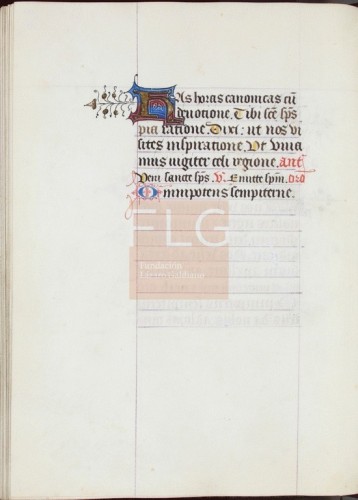 Has horas canonicas cū
deuotione. Tibi scē sp̄s
pia ratione. Dixi: ut nos vi
sites inspiratione. Vt viua
mus iugiter celi regione. ant
Veni sancte sp̄s. V. Emitte sp̄m. oro
Omnipotens sempiterne.
FLG
Fundación
Lázaro Galdiano